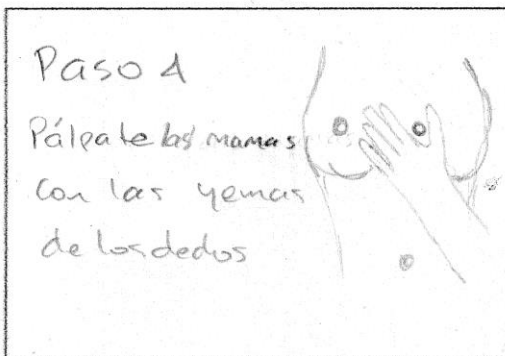 Paso 4
Pálpate las mamas
con las yemas
de los dedos